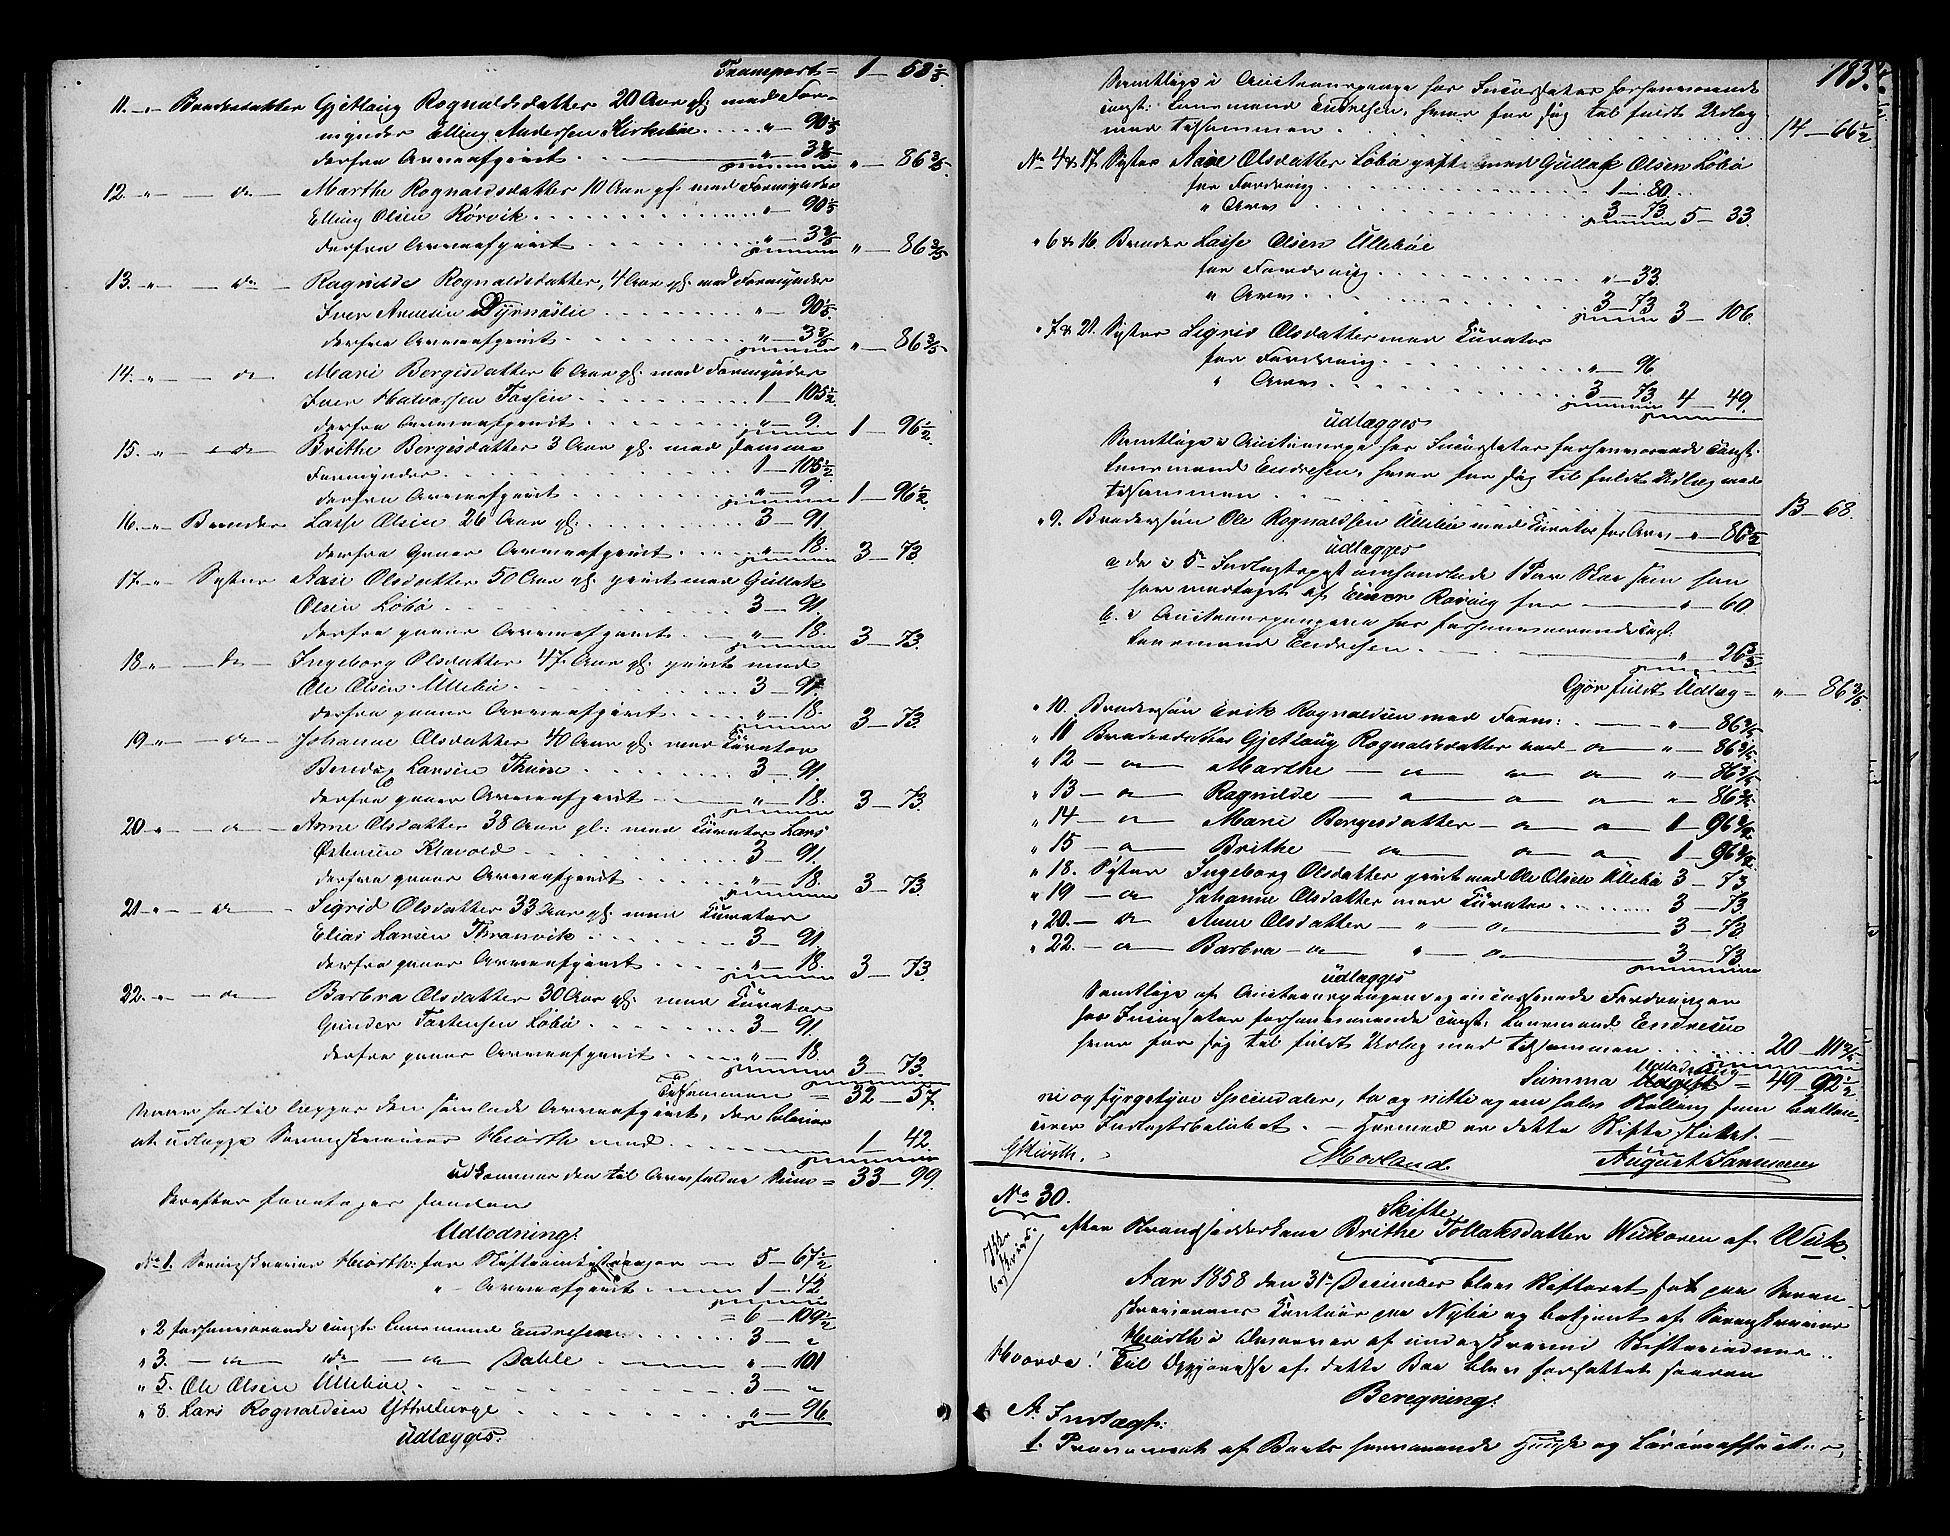 Transport = 1 — 58 2/5
11. „ Broderdatter Gjetlaug Rognaldsdatter 20 Aar gl. med For-
mynder Elling Andersen Kirkebøe .... „ — 90 1/5
derfra Arveafgivt „ — 3 3/5 „ — 86 3/5
12. „ — do — Marthe Rognaldsdatter 10 Aar gl. med Formynder
Elling Olsen Rørvik . . . „ — 90 1/5
derfra Arveafgivt . . . „ — 3 3/5 „ — 86 3/5
13. „ — do — Ragnilde Rognaldsdatter, 4 Aar gl. med Formynder
Iver Arnesen Dyrnæslie . . . „ — 90 1/5
derfra Arveafgivt . . . „ — 3 3/5 „ — 86 3/5
14. „ — do — Mari Bergesdatter 6 Aar gl. med Formynder
Iver Halvorsen Tossen . . . 1 — 105 1/2
derfra Arveafgivt . . . „ — 9. 1 — 96 1/2
15. „ — do — Brithe Bergesdatter 3 Aar gl. med samme
Formynder . . . 1 — 105 1/2
derfra Arveafgivt . . . „ — 9 1 — 96 1/2
16. „ Broder Lasse Olsen 26 Aar gl. . . . 3 — 91.
derfra gaaer Arveafgivt . . . „ — 18. 3 — 73.
17. „ Syster Aase Olsdatter 50 Aar gl. givt med Gullak
Olsen Løbø . . . 3 — 91.
derfra gaaer Arveafgivt . . . „ — 18. 3 — 73.
18 „ — do — Ingeborg Olsdatter 47 Aar gl. givt med
Ole Olsen Ullebøe . . . 3 — 91
derfra gaaer Arveafgivt . . . „ — 18. 3 — 73.
19 „ — do — Johanne Olsdatter 40 Aar gl. med Curator
Bendix Larsen Thune . . . 3 — 91.
derfra gaaer Arveafgivt . . . „ — 18. 3 — 73.
20 „ — do — Anne Olsdatter 38 Aar gl: med Curator Lars
Østensen Klavold . . . 3 — 91.
derfra gaaer Arveafgivt . . . „ — 18. 3 — 73.
21 „ — do — Sigrid Olsdatter 33 Aar gl. med Curator
Elias Hansen Thranvik . . . 3 — 91.
derfra gaaer Arveafgivt . . . „ — 18. 3 — 73.
22. „ — do — Barbra Olsdatter 30 Aar gl. med Curator
Gunder Tostensen Løbø . . . 3 — 91
derfra gaaer Arveafgivt . . . „ — 18. 3 — 73.
Tilsammen = 32 — 57.
Naar hertil lægges den samlede Arveafgivt, der bliver
at udlægge Sorenskriver Hiorth med . . . 1 — 42.
udkommer den til Arv faldne Sum = 33 — 99.
Derefter foretages saadan
Udlodning:
No 1. Sorenskriver Hiorth: for Skifteomkostninger 5 — 67 1/2
„ Arveafgivt 1 — 42
= 6 — 109 1/2
„ 2 forhenværende Const. Lensmand Endresen . . . 3 — „
„ 3. — do — do — do Dahle . . . „ — 101
„ 5. Ole Olsen Ullebøe . . . 3 — „
„ 8. Lars Rognaldsen Yttreberge „ — 96.
Udlægges:
183.
Samtlige i Auctionspenge hos Incassator forhenværende
Const: Lensmand Endresen, hver for sig til fuldt Udlæg
med tilsammen . . . 14 — 66 1/2
No 4 & 17. Syster Aase Olsdatter Løbø gift med Gullak Olsen Løbø
for Fordring . . . 1 — 80
„ Arv . . . 3 — 73 5 — 33.
„ 6 & 16. Broder Lasse Olsen Ullebøe
for Fordring . . . „ — 33.
„ Arv . . . 3 — 73 3 — 106.
„ 7 & 21. Syster Sigrid Olsdatter med Curator
for Fordring . . . „ — 96
„ Arv . . . 3 — 73 4 — 49.
udlægges
Samtlige i Auctionspe hos Incassator forhenværende Const.
Lensmand Endresen, hver for sig til fuldt Udlæg med
tilsammen . . . 13 — 68.
„ 9. Brodersøn Ole Rognaldsen Ullebøe med Curator for Arv „ — 86 3/5
udlægges
a de i 5te Indtægtspost omhandlede 1 Par Skoe som han
har modtaget af Einar Rørvig for „ — 60
b. i Auctionspengene hos forhenværende Const.
Lensmand Endresen . . . „ 26 3/5
Gjør fuldt Udlæg = „ — 86 3/5.
„ 10. Brodersøn Erik Rognaldsen med Form: „ — 86 3/5
„ 11 Broderdatter Gjetlaug Rognaldsdatter med — do „ — 86 3/5
„ 12 — do — Marthe — do do do „ — 86 3/5
„ 13 — do — Ragnilde — do do do „ — 86 3/5
„ 14 — do — Mari Bergesdatter — do — do 1 — 96 1/2
„ 15 — do — Brithe — do do do 1 — 96 1/2
„ 18. Syster Ingeborg Olsdatter givt med Ole Olsen Ullebø 3 — 73
„ 19 — do Johanne Olsdatter med Curator . . . 3 — 73
„ 20. — do Anne Olsdatter — „ — do 3 — 73
„ 22. — do Barbra — do „ — do 3 — 73.
udlægges
Samtlige af Auctionspengene og indcasserede Fordringer
hos Incassator forhenværende Const. Lensmand Endresen
hver for sig til fuldt Udlæg med tilsammen . . . 20 — 111 2/5
Summa Udlodning = 49 — 92 1/2
ni og fyrgetyve Speciedaler, to og nitti og en halv Skilling som ballan-
cerer Indtægtsbeløbet. — Hermed er dette Skifte sluttet. —
GHiorth. EMorland August Tannæss
No 30. Skifte
efter Strandsidderkone Brithe Tollaksdatter Wiikøren af Wiik.
Aar 1858 den 31te December blev Skifteret sat paa Soren-
skriverens Contoir paa Nybø og betjent af Sorenskriver
Hiorth i Overvær af underskrevne Skiftevidner.
Hvorda! Til Opgjørelse af dette Boe blev forfattet saadan
Beregning:
A. Indtægt:
1. Provenuet af Boets havende Huuse og Løsøreeffecter,